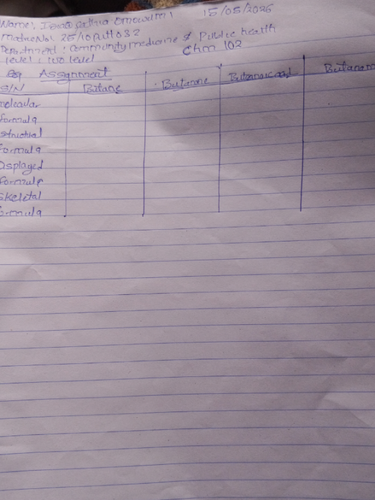 Name: 15/05/2026
Matric No: 25/10
Department: Community medicine & Public health
Level: 100 level Chm 102
Assignment
S/N Butane Butanone Butanoic acid
Molecular
formula
structural
formula
Displayed
formula
Skeletal
formula